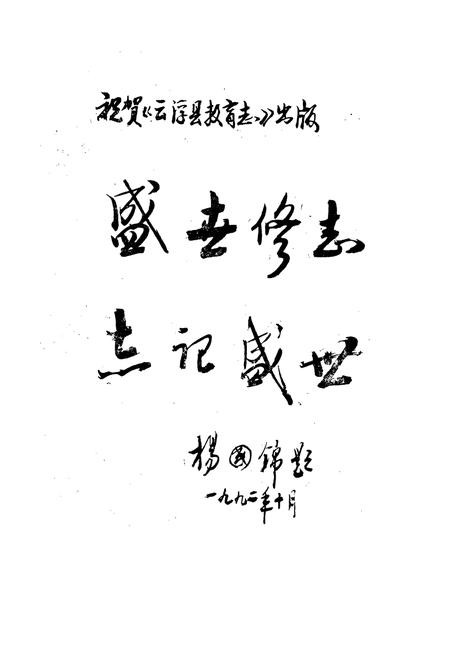 祝賀《云浮县教育志》出版
盛世修志
志记盛世
楊國錦題
一九九二年十月